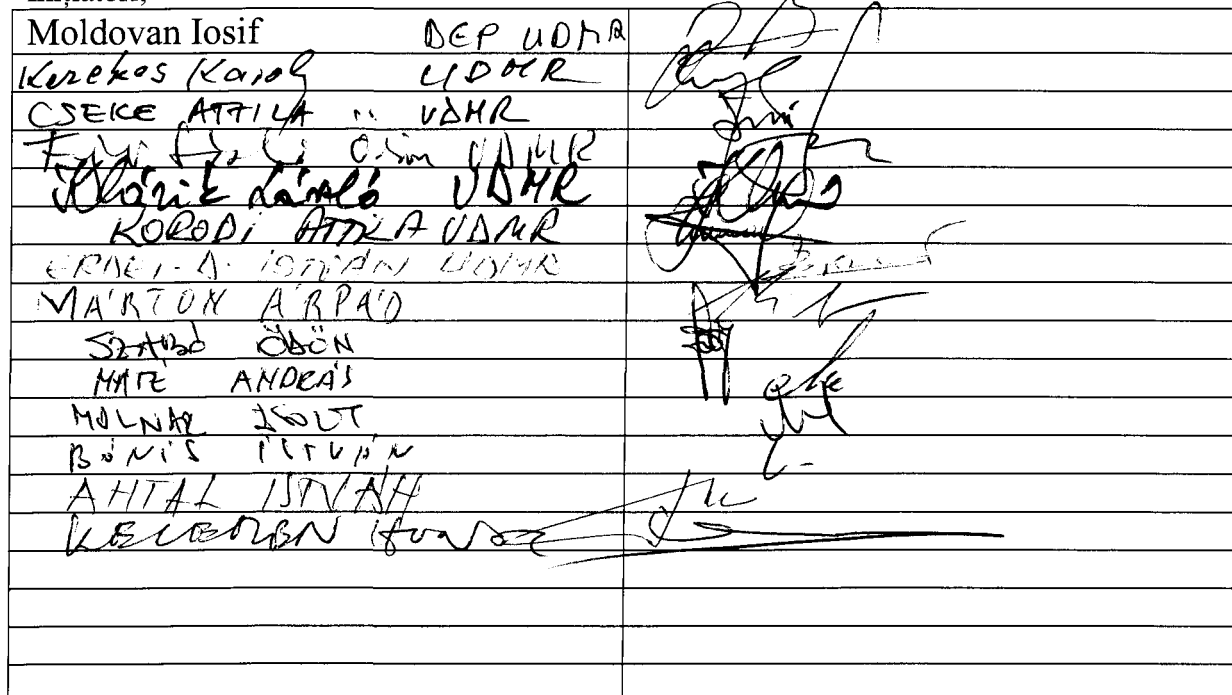 Moldovan Iosif DEP UDMR
Kerekes Karoly UDMR
CSEKE ATTILA " UDMR
UDMR
László UDMR
KORODI ATTILA UDMR
ERDEI-D. ISTVÁN UDMR
MÁRTON ÁRPÁD
SZABÓ ÖDÖN
MATÉ ANDRÁS
MOLNAR ZSOLT
BÓNIS ISTVÁN
ANTAL ISTVÁN
KELEMEN Hunor